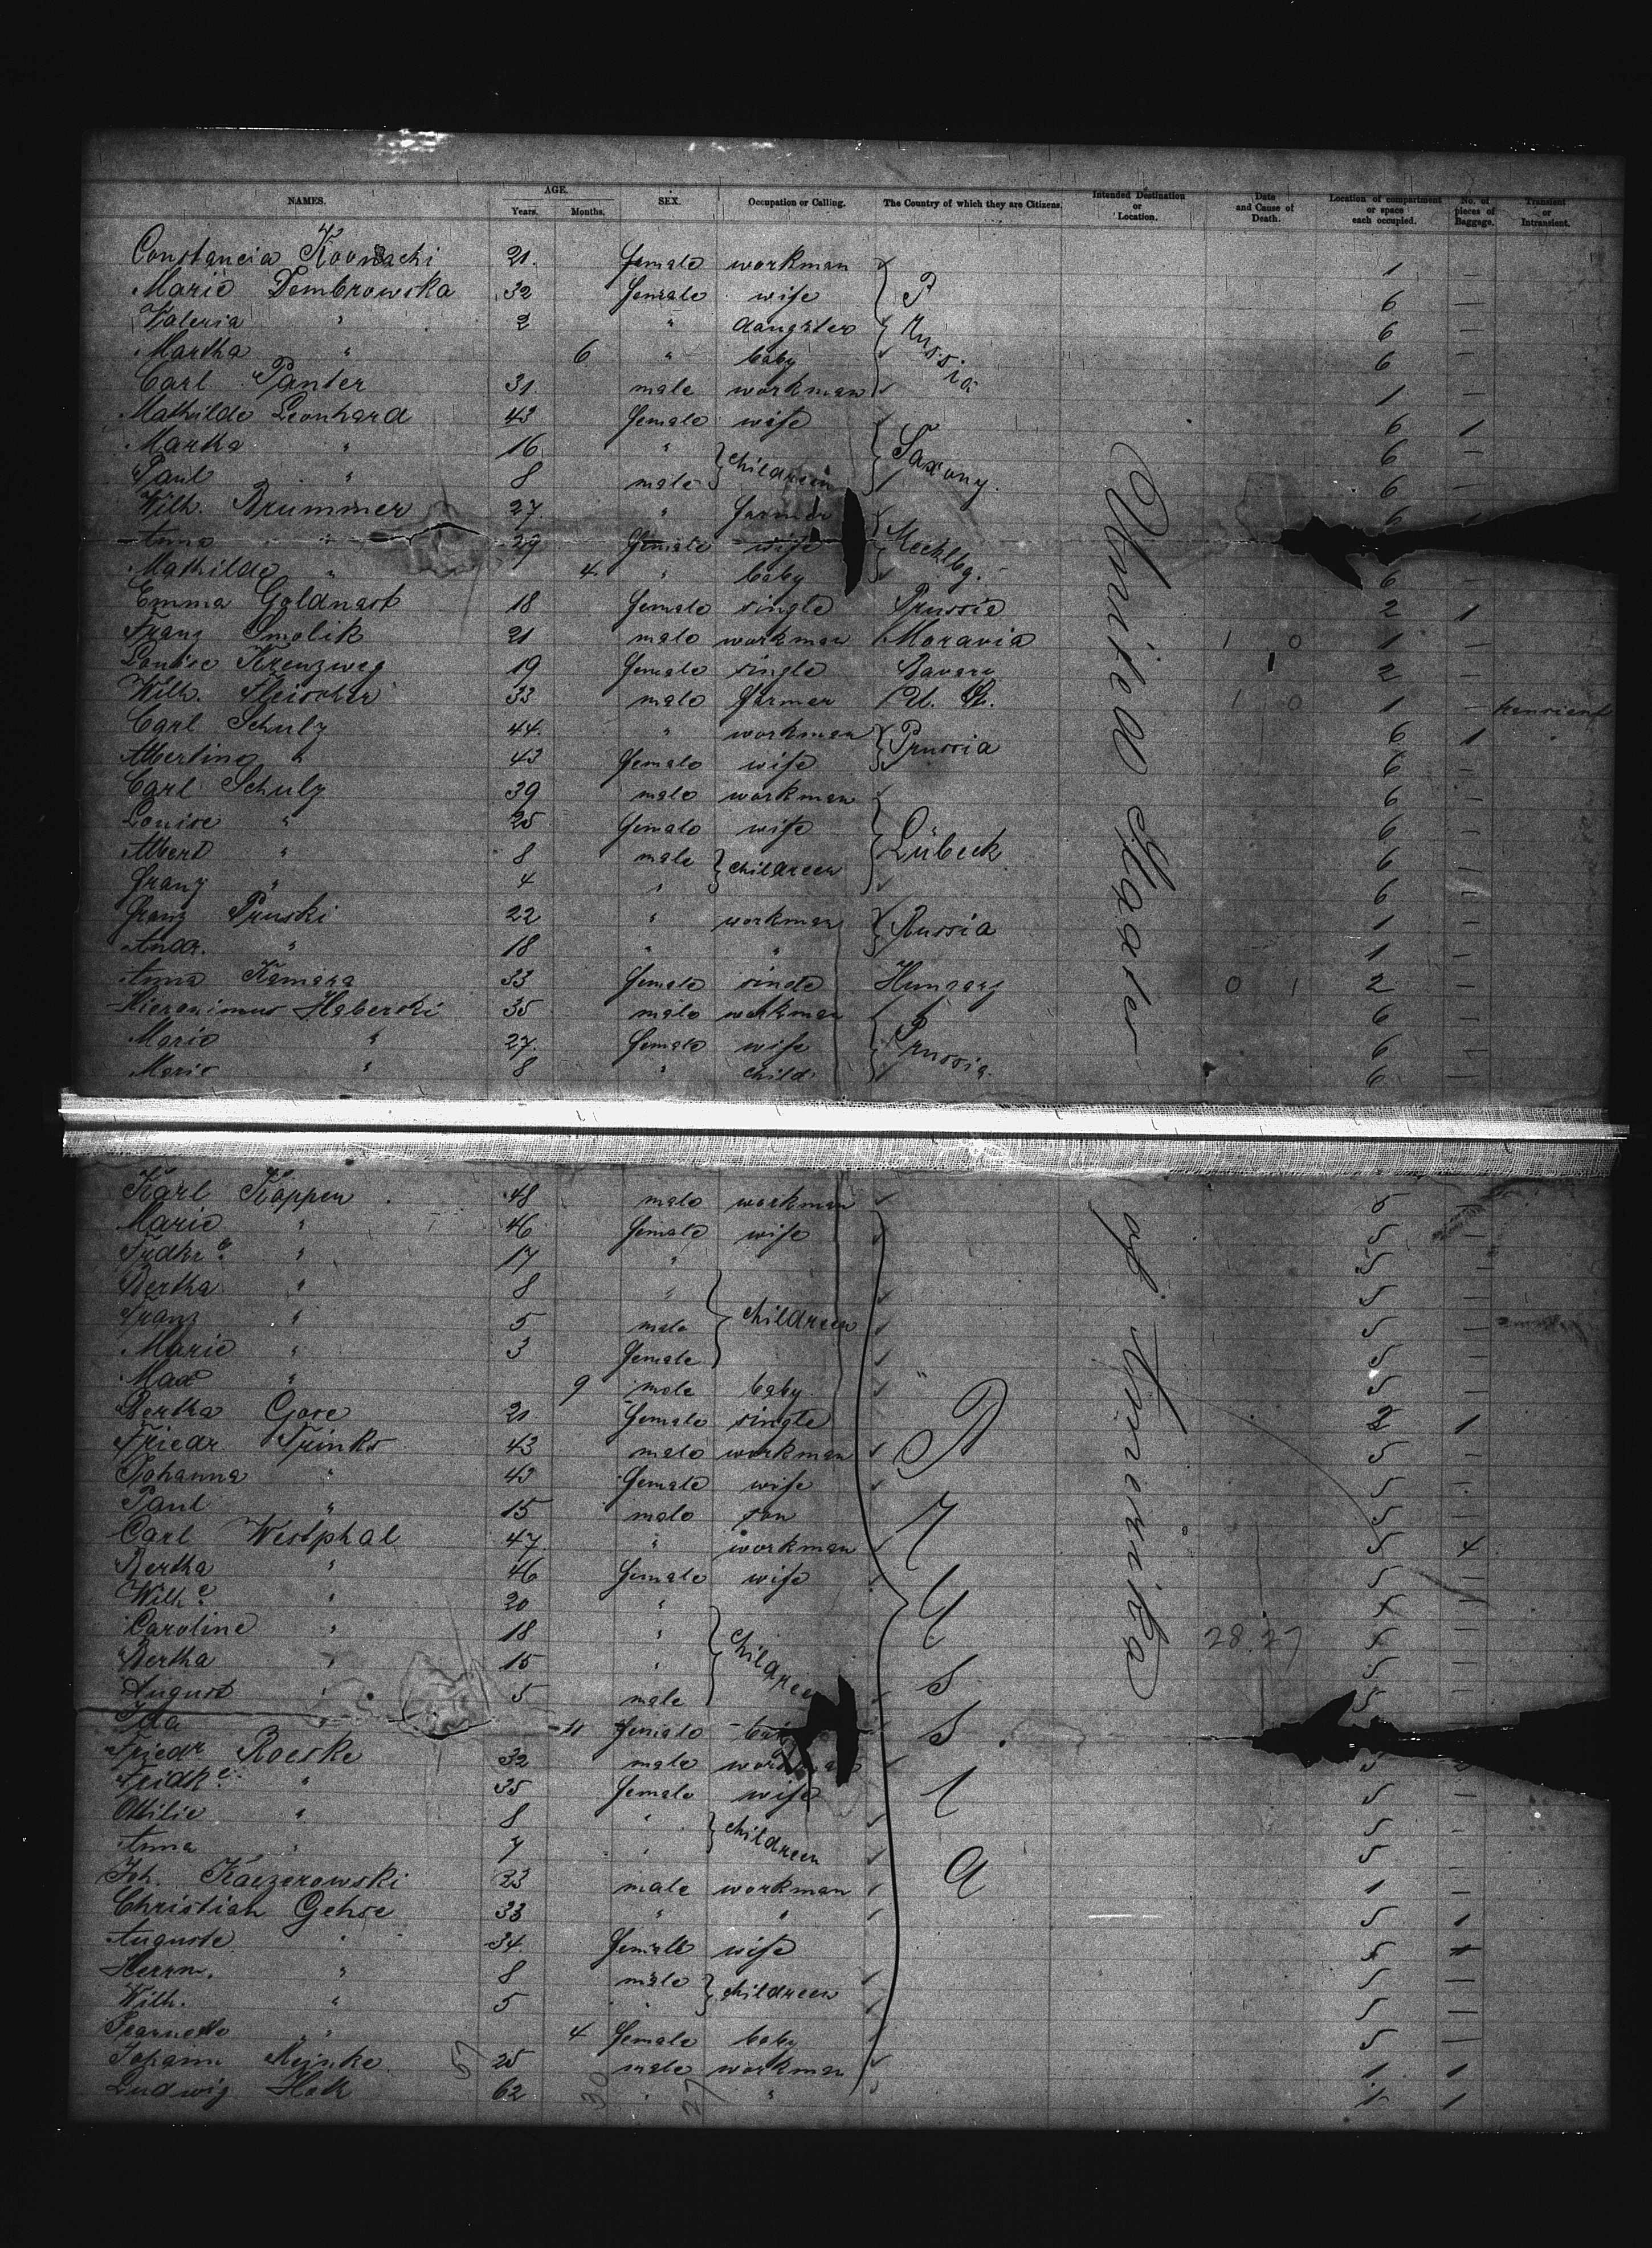 NAMES. AGE. Years. Months. SEX. Occupation or Calling. The Country of which they are Citizens. Intended Destination or Location. Date and Cause of Death. Location of compartment or space each occupied. No. of pieces of Baggage. Transient or Intransient.
Constancia 21. female workman 1 —
Marie Dombrowska 32 female wife P 6 —
Valeria " 2 " daugster russia 6 —
Martha " 6 " baby 6 —
Carl Panter 31. male workman 1 —
Mathilde Leonhard 43 female wife 6 1
Martha " 16 " children Saxony. 6 —
Paul " 8 male 6 —
Wilh. Brummer 27. " farmer 6
Anna " 29 female wife Mecklbg.
Mathilde " 4 " baby 6 —
Emma Goldnast 18 female single Prussia 2 1
Franz Smolik 21 male workman Moravia 1 0 1 —
Louise Krenzweg 19 female single Bavary 2 —
Wilh. Fleischer 33 male farmer U. St. 1 0 1 — transient
Carl Schulz 44. " workman Prussia 6 1
Albertine " 43 female wife 6 —
Carl Schulz 39 male workman 6 —
Louise " 25 female wife Lübeck 6 —
Albert " 8 male children 6 —
Franz " 4 " 6 —
Franz Pruski 22 " workman Russia 1 —
Andr. " 18 " " 1 —
Anna Kamara 33 female single Hungary 0 1 2 —
Hieronimus Haberski 35 male workman 6 —
Marie " 27. female wife Prussia. 6 —
Marie " 8 " child 6 —
United States
Karl Köppen 48 male workman 5 —
Marie " 46 female wife 5 —
Fridke. " 17 " 5 —
Bertha " 8 " children 5 —
Franz " 5 male 5 —
Marie " 3 female 5 —
Max " 9 male baby 5 —
Bertha Gose 21 female single 2 1
Friedr. Trinks 43 male workman 5 —
Johanna " 43 female wife 5 —
Paul " 15 male son 5 —
Carl Westphal 47. " workman 5 4
Bertha " 46 female wife 5 —
Wilhe. " 20 " 5 —
Caroline " 18 " children 28.27 5 —
Bertha " 15 " 5 —
August " 5 male 5 —
Ida 11 female
Friedr Roeske 32 male workman 5
Fridke. " 35 female wife 5 —
Ottilie " 8 " children 5 —
Anna " 7 " 5 —
Joh. Kaczerowski 23 male workman 1 —
Christian Gehse 33 " " 5 1
Auguste " 34. female wife 5
Herrm. " 8 male children 5 —
Wilh. " 5 " 5 —
" 4 female baby 5 —
Johann Reinke 57 25 male workman 1 1
Ludwig Hok 62 30 " 27 " 1 1
Prussia
of Amerika